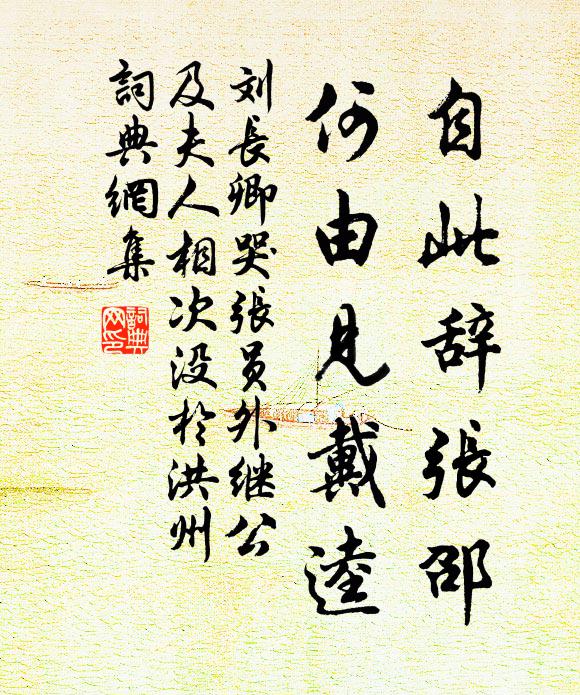 自此辞張邵
何由見戴逵
刘長卿哭張员外继公
及夫人相次没於洪州
詞典網集
詞典网印